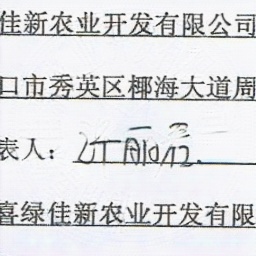 佳新农业开发有限公司
口市秀英区椰海大道周
表人：
喜绿佳新农业开发有限